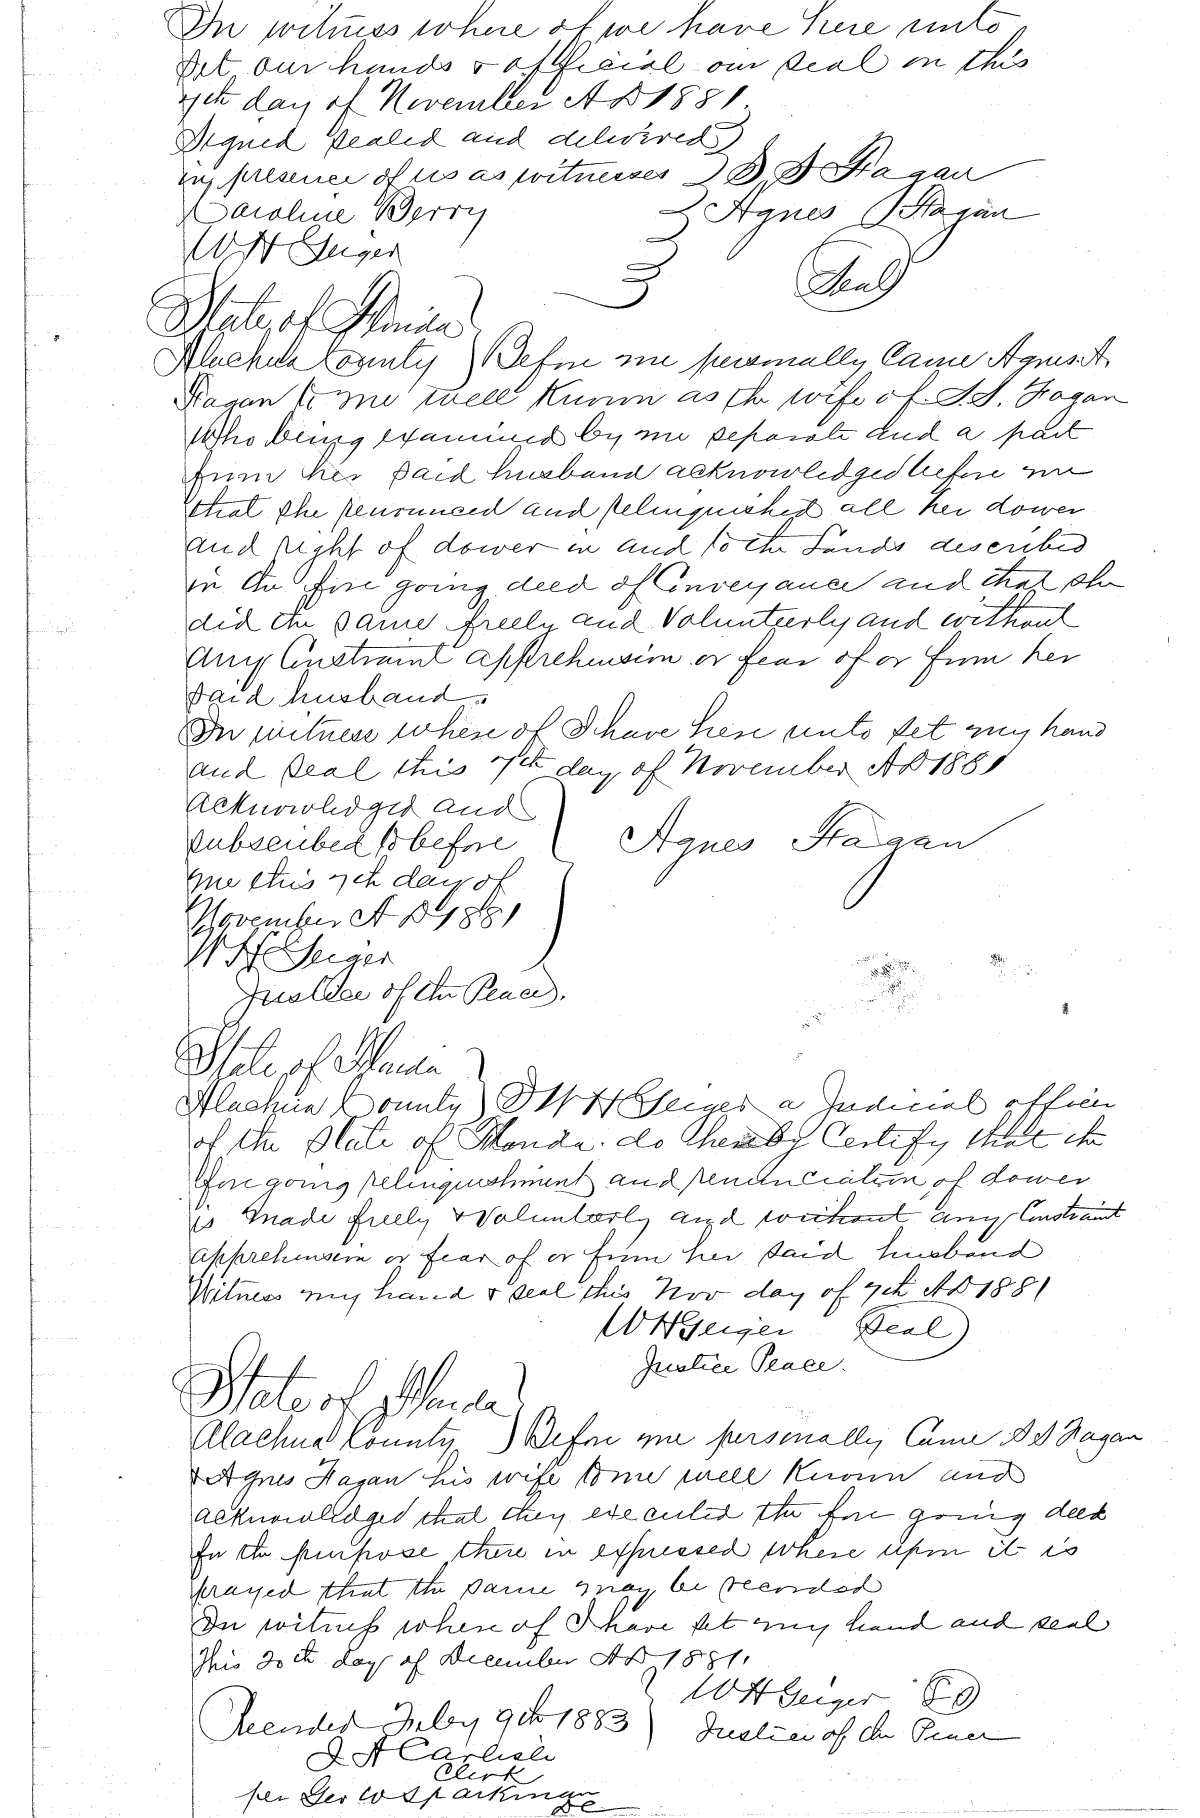 In witness where of we have here unto
set our hands & official our seal on this
7th day of November A D 1881.
Signed sealed and delivered
in presence of us as witnesses S. S. Hagan
Caroline Berry Agnes Hagan
W H Geiger
Seal
State of Florida
Alachua County Before me personally Came Agnes A.
Hagan to me well Known as the wife of S. S. Hagan
Who being examined by me separate and a part
from her said husband acknowledged before me
that she renounced and relinquished all her dower
and right of dower in and to the Lands described
in the fore going deed of Conveyance and that she
did the same freely and Volunteerly and without
any Constraint apprehension or fear of or from her
said husband.
In witness where of I have here unto set my hand
and seal this 7th day of November A D 1881
Acknowledged and
subscribed to before Agnes Hagan
me this 7th day of
November A D 1881
W H Geiger
Justice of the Peace.
State of Florida
Alachua County I W H Geiger a Judicial officer
of the State of Florida. do hereby Certify that the
fore going relinquishment and renunciation of dower
is made freely & Voluntarly and without any Constraint
apprehension or fear of or from her said husband
Witness my hand & seal this Nov day of 7th A D 1881
W H Geiger Seal
Justice Peace.
State of Florida
Alachua County Before me personally Came S S Hagan
& Agnes Hagan his wife to me well Known and
acknowledged that they executed the fore going deed
for the purpose there in expressed where upon it is
prayed that the same may be recorded
In witness where of I have set my hand and seal
This 20th day of December A D 1881.
W H Geiger
Recorded July 9th 1883 Justice of the Peace
J A Carlisle
Clerk
per Geo W Sparkman
DC